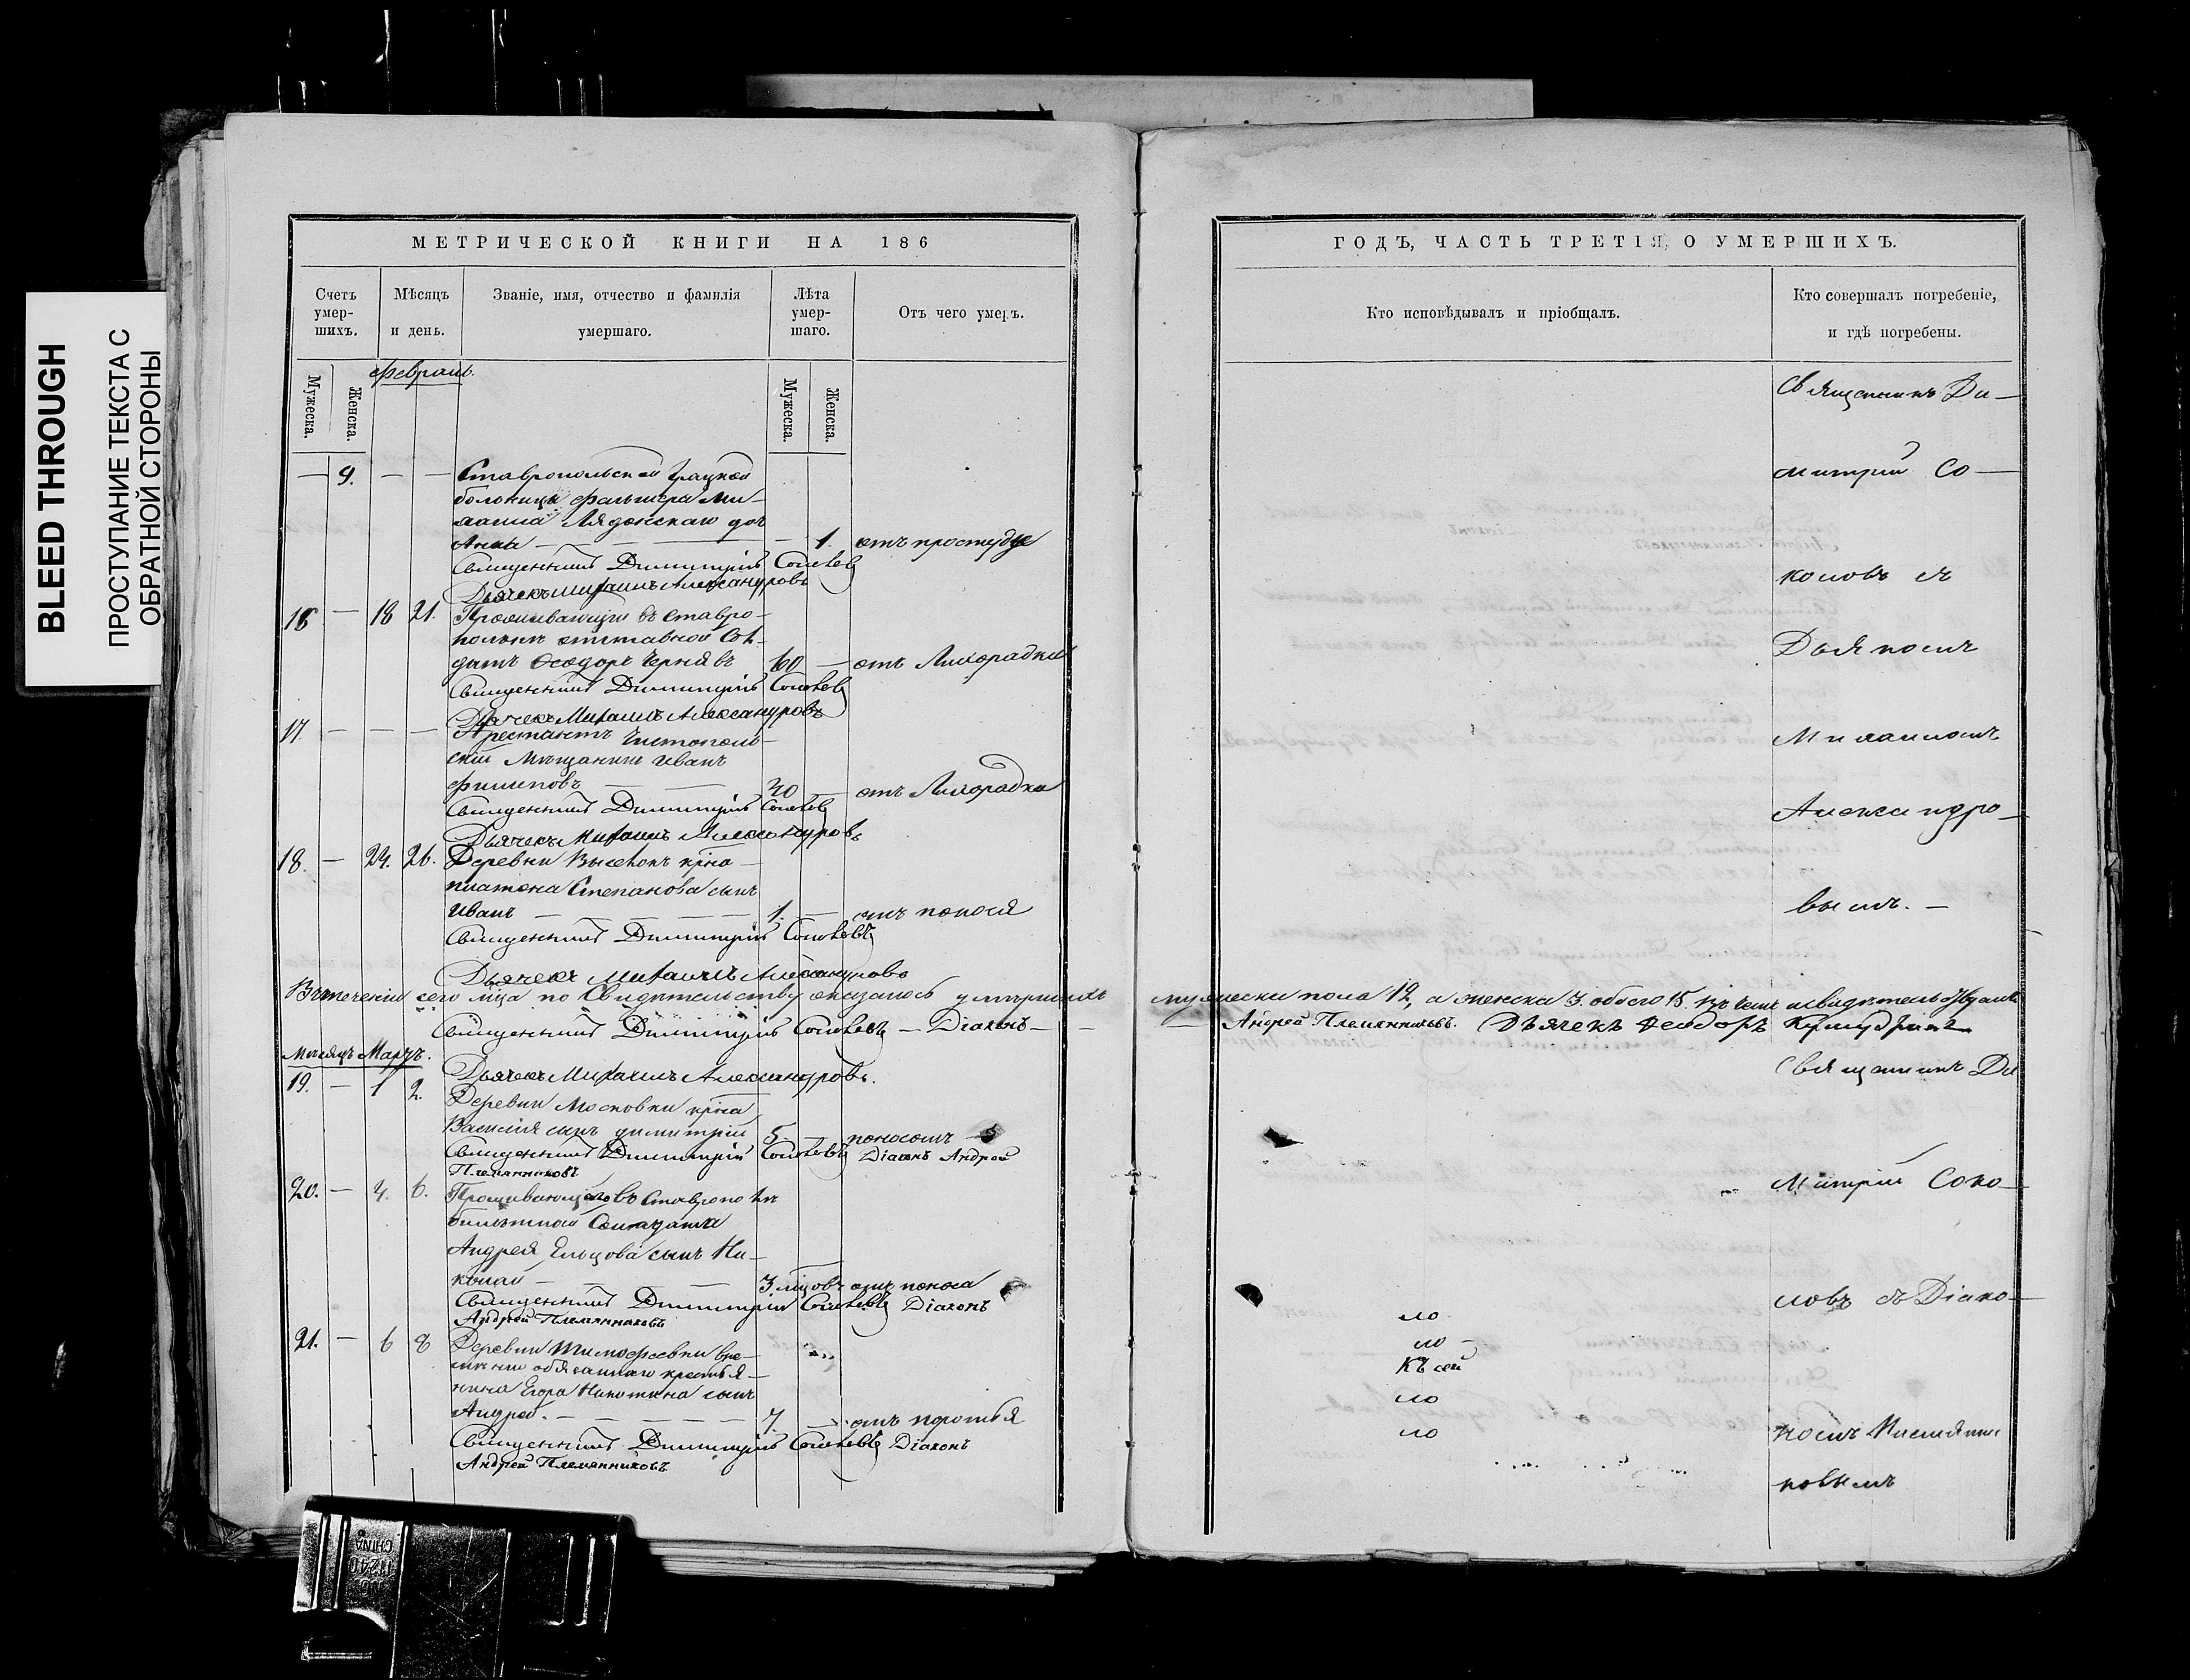 BLEED THROUGH
ПРОСТУПАНИЕ ТЕКСТА С
ОБРАТНОЙ СТОРОНЫ
МЕТРИЧЕСКОЙ КНИГИ НА 186
Счетъ умер-шихъ.
Мѣсяцъ и день.
Званіе, имя, отчество и фамилія умершаго.
Лѣта умер-шаго.
Отъ чего умеръ.
Мужеска.
Женска.
Февраль.
Мужеска.
Женска.
— 9. — — Ставропольской Градской
больницы фельдшера Ми-
хаила дочь
Анна — — 1. отъ простуды
Священникъ Димитрій Соколовъ
Дьячекъ Михаилъ Александровъ
16 — 18 21. Проживающій въ Ставро-
полѣ отставной Сол-
датъ Ѳеодоръ Чернявъ 60 — отъ Лихорадки
Священникъ Димитрій Соколовъ
Дьячекъ Михаилъ Александровъ
17. — — — Арестантъ Чистополь-
скій Мѣщанинъ Иванъ
Филиповъ — — 40 — отъ Лихорадки
Священникъ Димитрій Соколовъ
Дьячекъ Михаилъ Александровъ
18. — 24. 26. Деревни Выселокъ кр̃на
Платона Степанова сынъ
Иванъ — — — — 1. — отъ поноса
Священникъ Димитрій Соколовъ
Дьячекъ Михаилъ Александровъ
Въ теченіи сего м̃ца по Свидѣтельству оказалось умершихъ
Священникъ Димитрій Соколовъ — Діаконъ —
Мѣсяцъ Мартъ.
Дьячекъ Михаилъ Александровъ.
19. — 1 2. Деревни Московки кр̃на
Василія сынъ Димитрій 5. — поносомъ
Священникъ Димитрій Соколовъ Діаконъ Андрей
Племянниковъ
20. — 4. 6. Проживающаго въ Ставрополѣ
билетнаго Солдата
Андрея Ельцова сынъ Ни-
колай — — — 3 мцовъ отъ поноса
Священникъ Димитрій Соколовъ Діаконъ
Андрей Племянниковъ
21. — 6 8 Деревни Тимофеевки вре-
менно обязаннаго крестья-
нина Егора Никитина сынъ
Андрей. — — — — 7. —
Священникъ Димитрій Соколовъ Діаконъ
Андрей Племянниковъ
ГОДЪ, ЧАСТЬ ТРЕТІЯ, О УМЕРШИХЪ.
Кто исповѣдывалъ и пріобщалъ.
Кто совершалъ погребеніе,
и гдѣ погребены.
Священникъ Ди—
митрій Со—
коловъ съ
Дьячкомъ
Михаиломъ
Александро—
вымъ. —
мужеска пола 12, а женска 3. обоего 15. Въ чемъ и свидѣтельствуемъ
Андрей Племянниковъ. Дьячекъ Ѳеодоръ
Священникъ Ди
митрій Соко—
ловъ съ Діако—
номъ Племянни
ковымъ